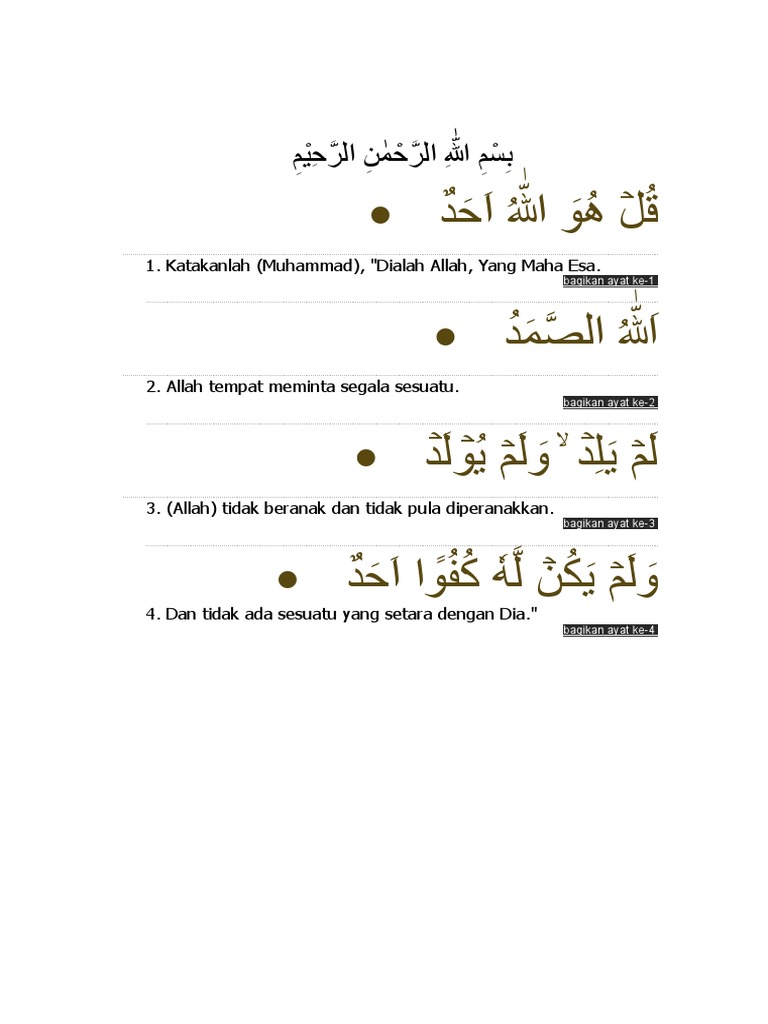 بِسْمِ اللّٰهِ الرَّحْمٰنِ الرَّحِيْمِ
قُلْ هُوَ اللّٰهُ اَحَدٌ ●
1. Katakanlah (Muhammad), "Dialah Allah, Yang Maha Esa.
bagikan ayat ke-1
اَللّٰهُ الصَّمَدُ ●
2. Allah tempat meminta segala sesuatu.
bagikan ayat ke-2
لَمْ يَلِدْ ۙ وَلَمْ يُوْلَدْ ●
3. (Allah) tidak beranak dan tidak pula diperanakkan.
bagikan ayat ke-3
وَلَمْ يَكُنْ لَّهٗ كُفُوًا اَحَدٌ ●
4. Dan tidak ada sesuatu yang setara dengan Dia."
bagikan ayat ke-4